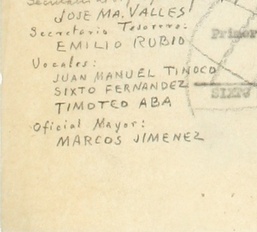 JOSE MA. VALLES
Secretario Tesorero:
EMILIO RUBIO
Vocales:
JUAN MANUEL TINOCO
SIXTO FERNANDEZ
TIMOTEO ABA
Oficial Mayor:
MARCOS JIMENEZ
Primer
SIXTO